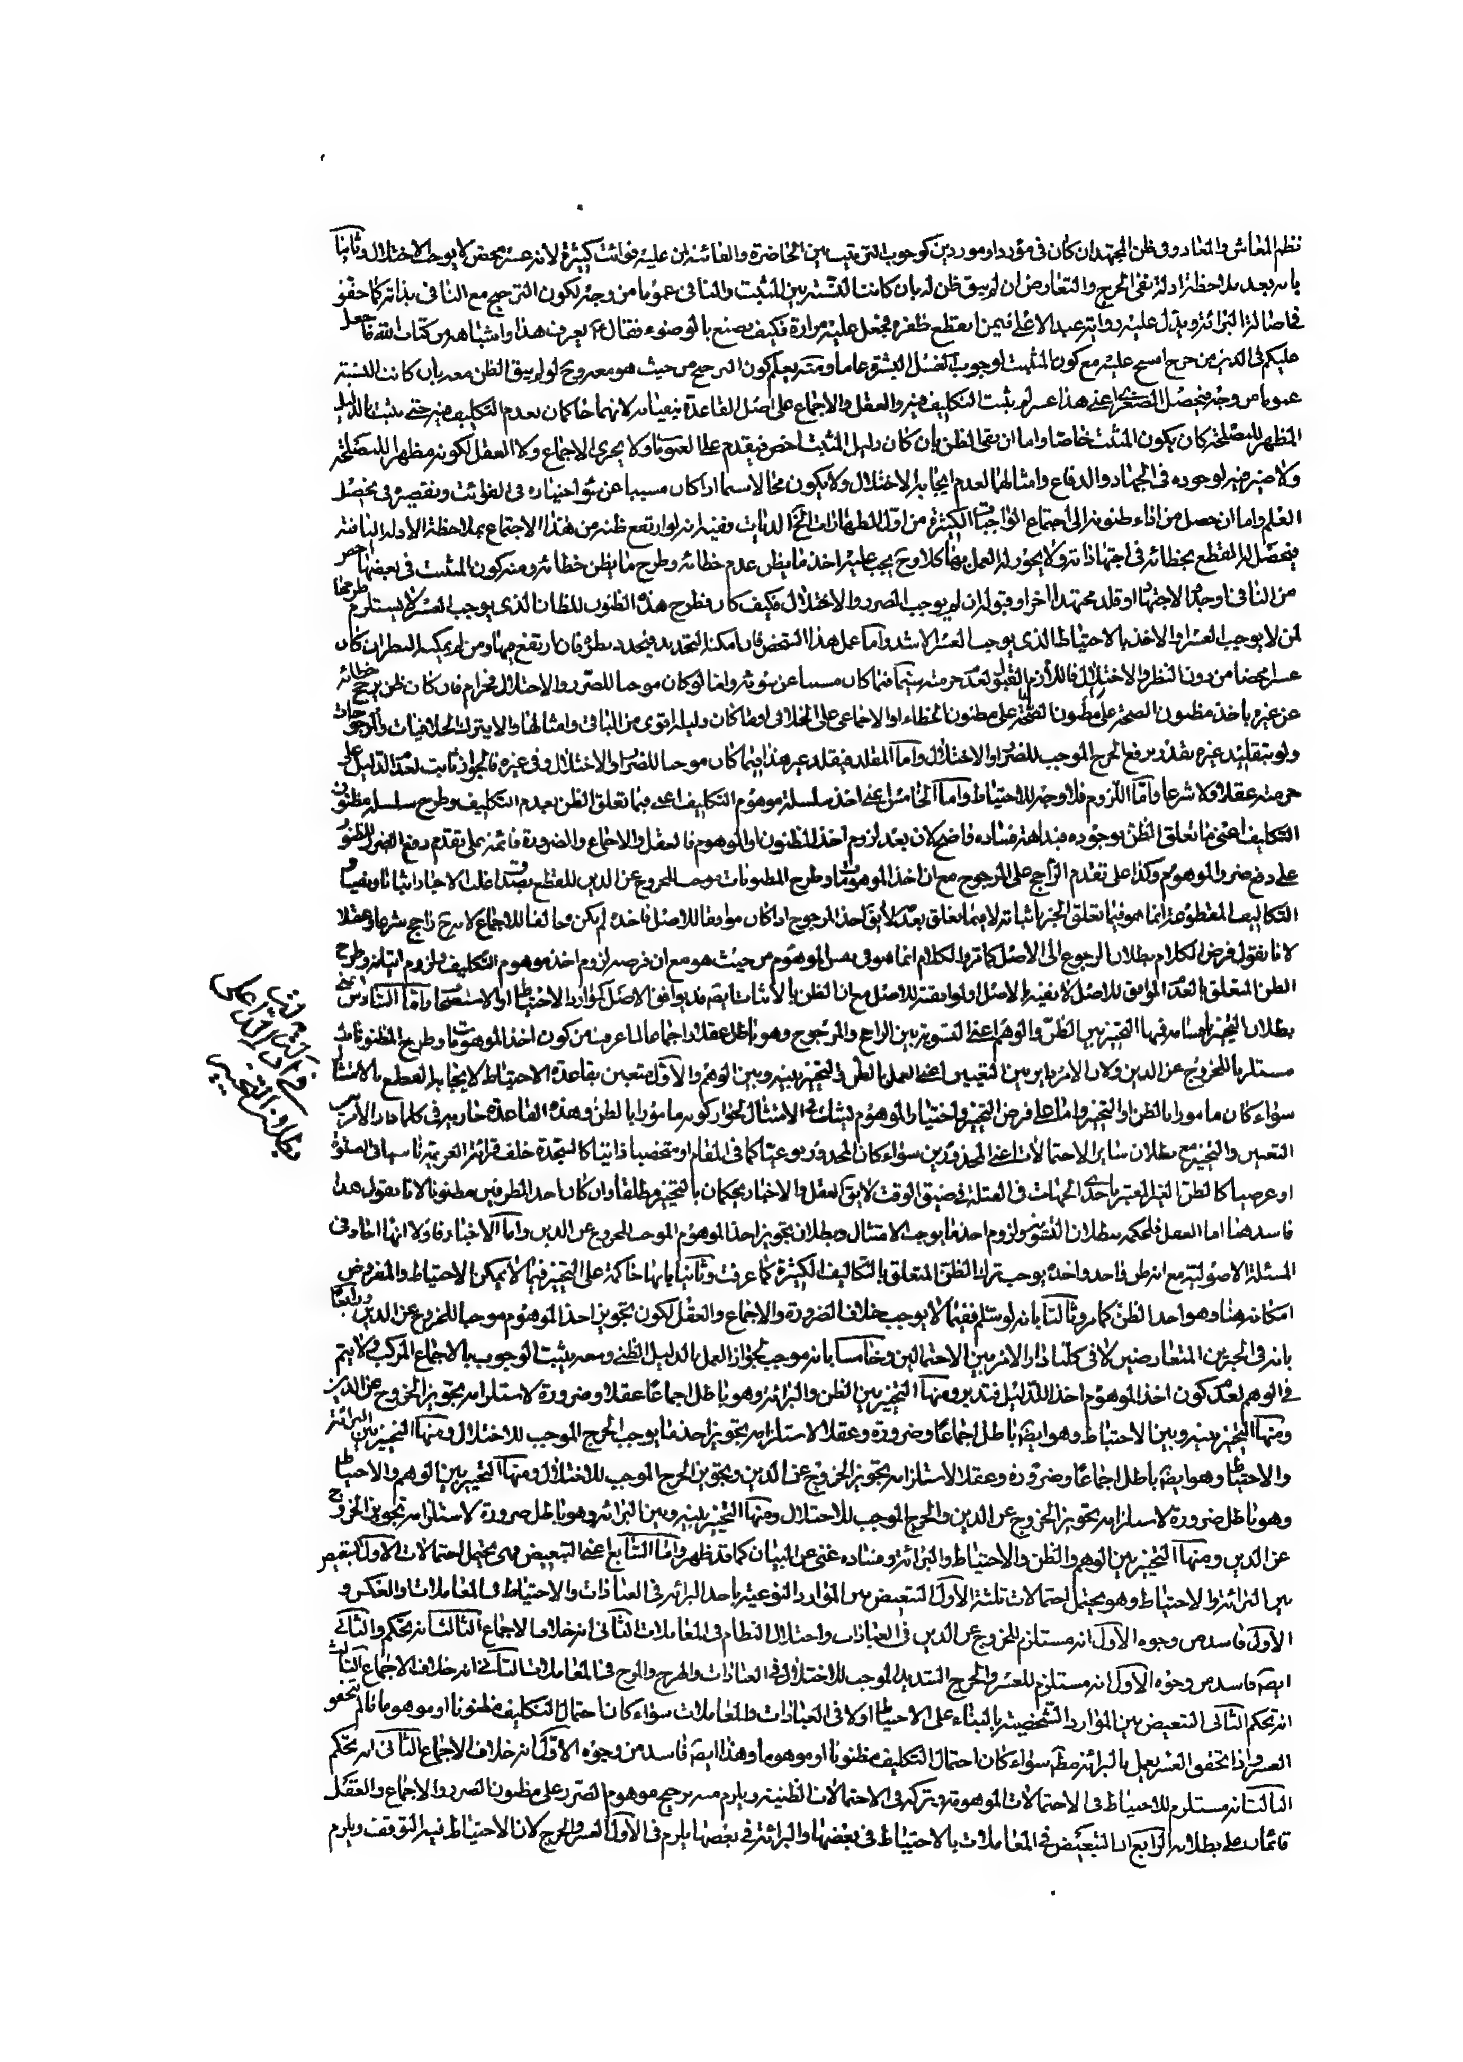 نظم المعاش والمعاد وفى ظن المجتهد ان كان فى مورد او موردين كوجوب الترتيب بين الحاضرة والفائتة لمن عليه فوائت كثيرة لانه عسر محض لا يوجب الاختلال وثانيا
بانه بعد ملاحظة ادلة نفى الحرج والتعارض ان لم يبق ظن له بان كانت النسبة بين المثبت والنافى عموما من وجه لكون الترجيح مع النافى بذاته كما حقق
فاصالة البرائة ويدل عليه رواية عبد الاعلى فيمن انقطع ظفره فجعل عليه مرارة فكيف يصنع بالوضوء فقال ع يعرف هذا واشباهه من كتاب الله ما جعل
عليكم فى الدين من حرج امسح عليه مع كون المثبت لوجوب الغسل البشرة عاما ومنه يعلم كون الترجيح من حيث هو معه وح لو لم يبق الظن معه بان كانت النسبة
عموما من وجه فيحصل الصغرى اعنى هذا عسر لم يثبت التكليف فيه والعقل والاجماع على اصل القاعدة ينفيانه لانهما حاكمان بعدم التكليف فيه حتى يثبت بالدليل
المظهر للمصلحة كان يكون المثبت خاصا واما ان بقى الظن بان كان دليل المثبت اخص فيقدم على العمومات ولا يجرى الاجماع ولا العقل لكونه مظهرا للمصلحة
ولا ضير فيه لوجوده فى الجهاد والدفاع وامثالهما لعدم ايجابه الاختلال ولا يكون محالا سيما اذا كان مسببا عن سوء اختياره فى الفوائت وتقصيره فى تحصيل
العلم واما ان حصل من اداء ظنونه الى اجتماع الواجبات الكثيرة من اول الطهارات الى الديات ففيه انه لو ارتفع ظنه من هذا الاجتماع بملاحظة الادلة النافية
فيحصل له القطع بخطائه فى اجتهاداته ولا يجوز له العمل بها كلا وح يجب عليه اخذ ما يظن عدم خطائه وطرح ما يظن خطائه ومنه كون المثبت فى بعضها اخص
من النافى واوجد الاجتهاد او قلد مجتهدا اخر او قبوله ان لم يوجب الضرر والاختلال فكيف كان فطرح هذه الظنون للظان الذى يوجب العسر لا يستلزم طرحها
لمن لا يوجب العسر والاخذ بالاحتياط الذى يوجب العسر الاشد واما عمل هذا الشخص فان امكنه التجديد فيجدد نظره فان ارتفع فيها ومن لم يمكنه النظر ان كان
عسرا محضا من دون الضرر والاختلال فاللازم القبول لعدم حرمته سيما فيما كان مسببا عن سوء واما لو كان موجبا للضرر والاختلال فحرام فان كان ظن يرجح خطائه
عن غيره ياخذ مظنون الصحة على مظنون الصحة على مظنون الخطاء او الاجماعى على الخلافى او ما كان دليله اقوى من الباقى وامثالها والا يترك الخلافيات والمرجوحات
ولو بتقليد غيره بقدر يرفع الحرج الموجب للضرر او الاختلال واما المقلد فيقلد غير هذا فيما كان موجبا للضرر والاختلال وفى غيره فالجواز ثابت لعدم الدليل على
حرمته عقلا ولا شرعا واما اللزوم فلا وجه للاحتياط واما الخامس اعنى اخذ سلسلة موهوم التكليف اعنى فيما تعلق الظن بعدم التكليف وطرح سلسلة مظنون
التكليف اعنى ما تعلق الظن بوجوده فبداهة فساده واضح لان بعد لزوم اخذ المظنون او الموهوم فالعقل والاجماع والضرورة قائمة على تقدم دفع الضرر المظنون
على دفع ضرر الموهوم وكذا على تقدم الراجح على المرجوح مع ان اخذ الموهومات وطرح المظنونات موجب للخروج عن الدين للقطع بصدق اغلب الاخبار اثباتا ونفيا و
التكاليف المقطوعة انما هو فيما تعلق الخبر باثباته لا فيما تعلق بعدمه لا يق اخذ المرجوح اذا كان موافقا للاصل فاخذه لم يكن مخالفا للاجماع لانه ح راجح شرعا وعقلا
لانا نقول فرض الكلام بطلان الرجوع الى الاصل كما مر والكلام انما هو فى نفس الموهوم من حيث هو مع ان فرض لزوم اخذ موهوم التكليف ولزوم اتيانه وطرح
الظن المتعلق بالعدم الموافق للاصل لا نفيه بالاصل او لموافقته للاصل مع ان الظن بالاثبات ايضا قد يوافق الاصل كموارد الاحتياط او الاستصحاب واما السادس اعنى
بطلان التخيير باقسامه فمنها التخيير بين الظن والوهم اعنى التسوية بين الراجح والمرجوح وهو باطل عقلا واجماعا لما عرفت من كون اخذ الموهومات وطرح المظنونات
مستلزما للخروج عن الدين ولان الامر دائر بين التعيين اعنى العمل بالظن والتخيير بينه وبين الوهم والاول متعين بقاعدة الاحتياط لايجابه القطع بالامتثال
سواء كان مامورا بالظن او التخيير واما على فرض التخيير واختيار الموهوم فيشك فى الامتثال لجواز كونه مامورا بالظن وهذه القاعدة جارية فى كلما دار الامر بين
التعيين والتخيير مع بطلان سائر الاحتمالات اعنى المحذورين سواء كان المحذور نوعيا كما فى المقام او شخصيا ذاتيا كالسجدة خلف قرائة العزيمة ناسيا فى الصلوة
او عرضيا كالظن الغير المعتبر باحدى الجهات فى القبلة فى ضيق الوقت لا يق العقل والاخبار يحكمان بالتخيير مطلقا وان كان احد الطرفين مظنونا لانا نقول هذا
فاسد هنا اما العقل فلحكمه ببطلان التسوية ولزوم اخذ ما يوجب الامتثال وبطلان تجويز اخذ الموهوم الموجب للخروج عن الدين واما الاخبار فاولا انها احاد فى
المسئلة الاصولية مع انه ظن واحد واخذه يوجب ترك الظن المتعلق بالتكاليف الكثيرة كما عرفت وثانيا بانها حاكمة على التخيير فيما لا يمكن الاحتياط والمفروض
امكانه هنا وهو اخذ الظن كما مر وثالثا بانه لو سلم ففيما لا يوجب خلاف الضرورة والاجماع والعقل لكون تجويز اخذ الموهوم موجبا للخروج عن الدين ورابعا
بانه فى الخبرين المتعارضين لا فى كلما دار الامر بين الاحتمالين وخامسا بانه موجب لجواز العمل بالدليل الظنى ومعه يثبت الوجوب بالاجماع المركب ولا يتم
فى الوهم لعدم كون اخذ الموهوم اخذا للدليل فتدبر ومنها التخيير بين الظن والبرائة وهو باطل اجماعا عقلا وضرورة لاستلزامه تجويز الخروج عن الدين
ومنها التخيير بينه وبين الاحتياط وهو ايضا باطل اجماعا وضرورة وعقلا لاستلزامه تجويز اخذ ما يوجب الحرج الموجب للاختلال ومنها التخيير بين البرائة
والاحتياط وهو ايضا باطل اجماعا وضرورة وعقلا لاستلزامه تجويز الخروج عن الدين وتجويز الحرج الموجب للاختلال ومنها التخيير بين الوهم والاحتياط
وهو باطل ضرورة لاستلزامه تجويز الخروج عن الدين والحرج الموجب للاختلال ومنها التخيير بينه وبين البرائة وهو باطل ضرورة لاستلزامه تجويز الخروج
عن الدين ومنها التخيير بين الوهم والظن والاحتياط والبرائة وفساده غنى عن البيان كما قد ظهر واما السابع اعنى التبعيض فهى يحتمل احتمالات الاول التبعيض
بين البرائة والاحتياط وهو يحتمل احتمالات ثلثة الاول التبعيض بين الموارد النوعية باخذ البرائة فى العبادات والاحتياط فى المعاملات والعكس و
الاول فاسد من وجوه الاول انه مستلزم للخروج عن الدين فى العبادات واختلال النظام فى المعاملات الثانى انه خلاف الاجماع الثالث انه تحكم والثانى
ايضا فاسد من وجوه الاول انه مستلزم للعسر والحرج الشديد الموجب للاختلال فى العبادات والهرج والمرج فى المعاملات الثانى انه خلاف الاجماع الثالث
انه تحكم الثانى التبعيض بين الموارد الشخصية بالبناء على الاحتياط اولا فى العبادات والمعاملات سواء كان احتمال التكليف مظنونا او موهوما فالم تحقق
العسر واذا تحقق العسر يعمل بالبرائة مطلقا سواء كان احتمال التكليف مظنونا او موهوما وهذا ايضا فاسد من وجوه الاول انه خلاف الاجماع الثانى انه تحكم
الثالث انه مستلزم للاحتياط فى الاحتمالات الموهومة وتركه فى الاحتمالات الظنية ويلزم منه ترجيح موهوم الضرر على مظنون الضرر والاجماع والعقل
قائمان على بطلانه الرابع ان التبعيض فى المعاملات بالاحتياط فى بعضها والبرائة فى بعضها يلزم فى الاول العسر والحرج لان الاحتياط فيه التوقف ويلزم